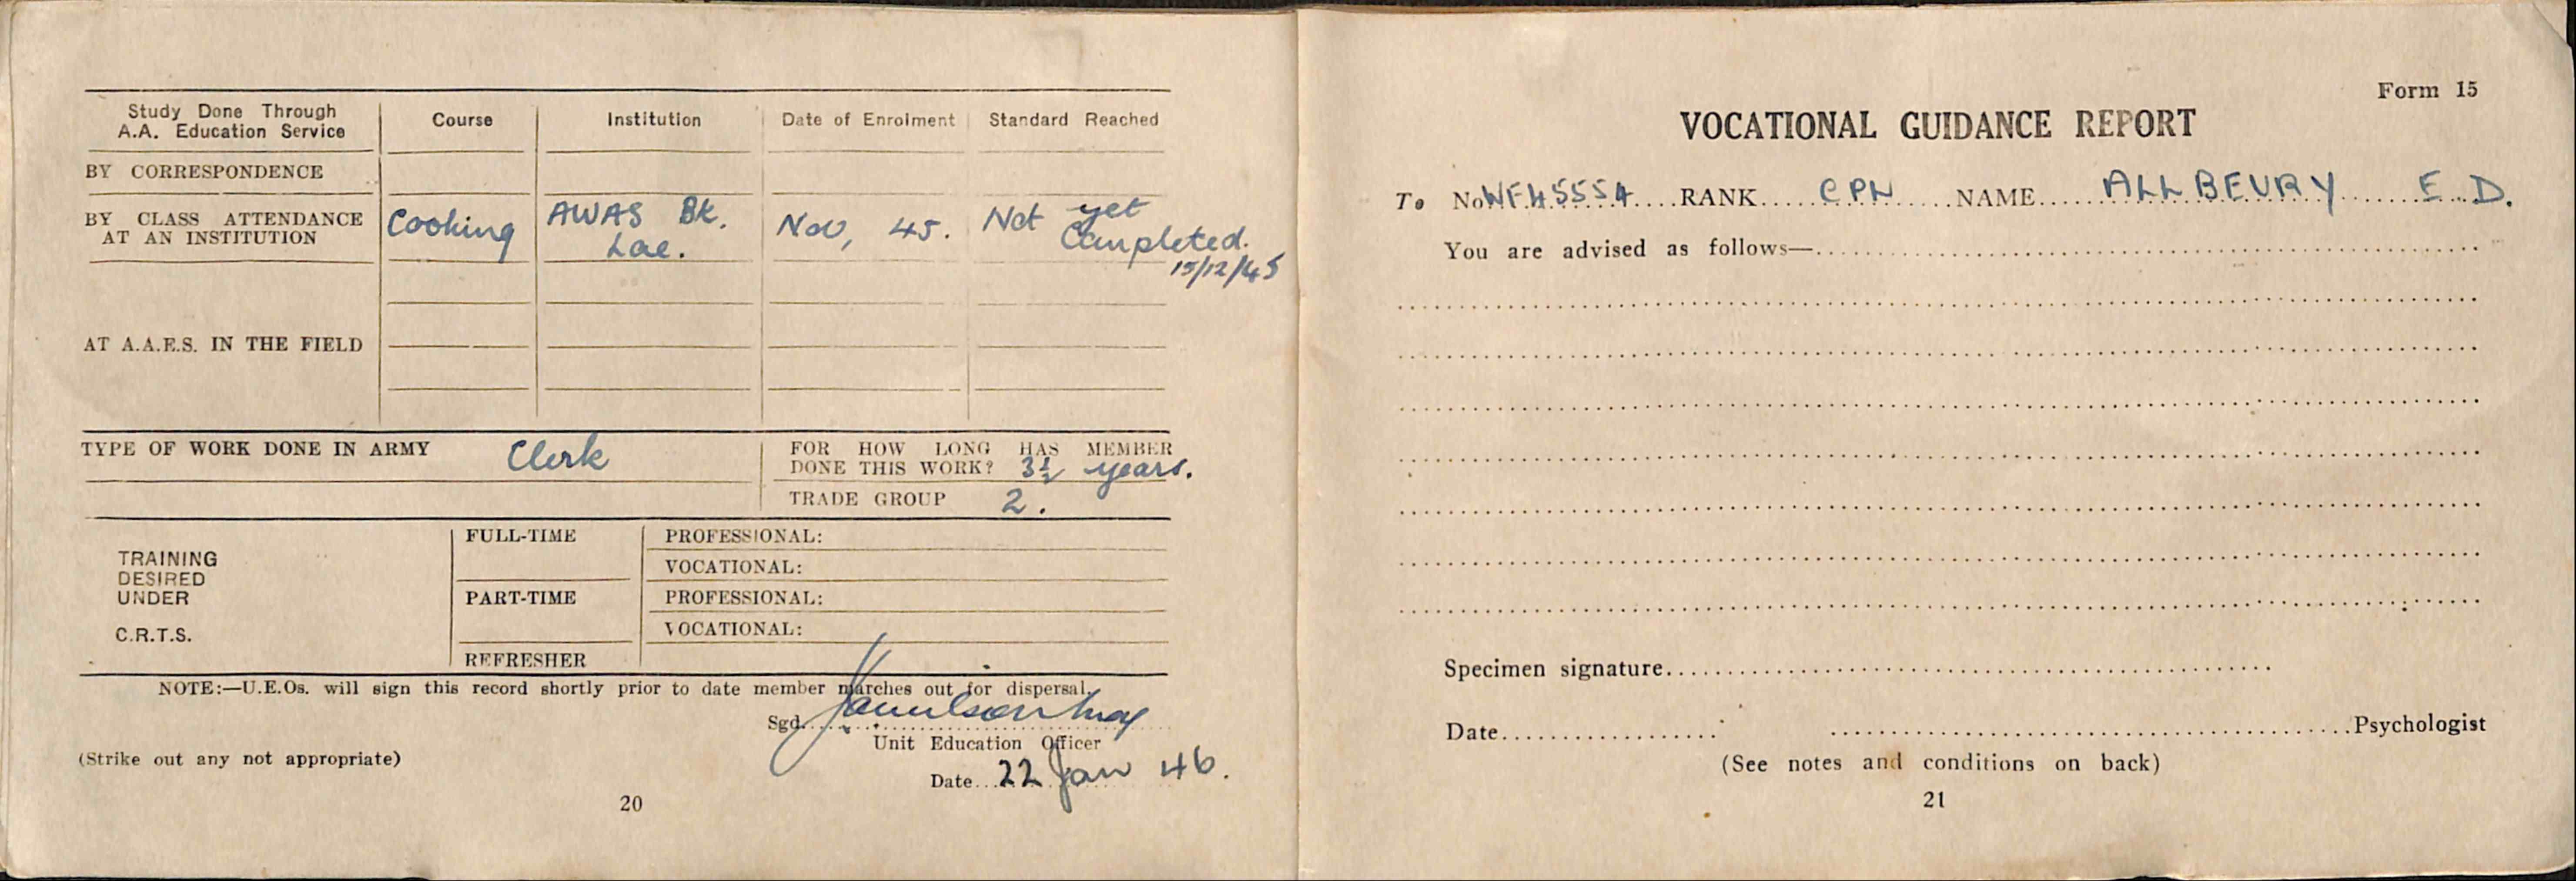 Study Done Through
A.A. Education Service
Course
Institution
Date of Enrolment
Standard Reached
BY CORRESPONDENCE
BY CLASS ATTENDANCE
AT AN INSTITUTION
Cooking
AWAS Bk.
Lae.
Nov, 45.
Not yet
Completed.
15/12/45
AT A.A.E.S. IN THE FIELD
TYPE OF WORK DONE IN ARMY Clerk
FOR HOW LONG HAS MEMBER
DONE THIS WORK? 3½ years.
TRADE GROUP 2.
TRAINING
DESIRED
UNDER
C.R.T.S.
FULL-TIME
PROFESSIONAL:
VOCATIONAL:
PART-TIME
PROFESSIONAL:
VOCATIONAL:
REFRESHER
NOTE:—U.E.Os. will sign this record shortly prior to date member marches out for dispersal.
Sgd.
Unit Education Officer
(Strike out any not appropriate)
Date...22 Jan 46.
20
Form 15
VOCATIONAL GUIDANCE REPORT
To No. RANK CPL NAME ALLBEURY E. D.
You are advised as follows—
Specimen signature
Date Psychologist
(See notes and conditions on back)
21